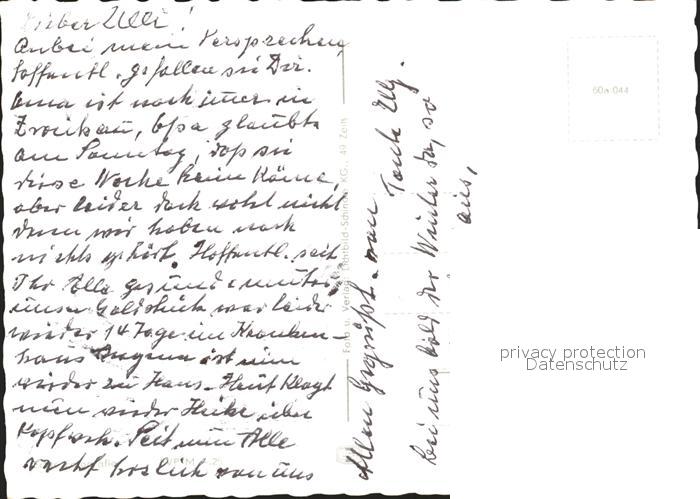 Lieber Ulli!
Anbei mein Versprechen,
hoffentl. gefallen sie Dir.
Oma ist noch immer in
Zwickau, Opa glaubte
am Sonntag, daß sie
diese Woche heim käme,
aber leider doch wohl nicht
denn wir haben noch
nichts gehört. Hoffentl. seit
Ihr Alle gesund u. munter
unser Goldstück war leider
wieder 14 Tage im Kranken-
haus ist nun
wieder zu Haus. Heut klagt
nun wieder Heike über
Kopfweh. Seit nun Alle
recht herzlich von uns
Allen gegrüßt. von Tante Elly.
bei uns bald der Winter da, so
aus,
Foto u. Verlag Lichtbild-Schincke KG., 49 Zeitz
60w.044
privacy protection
Datenschutz